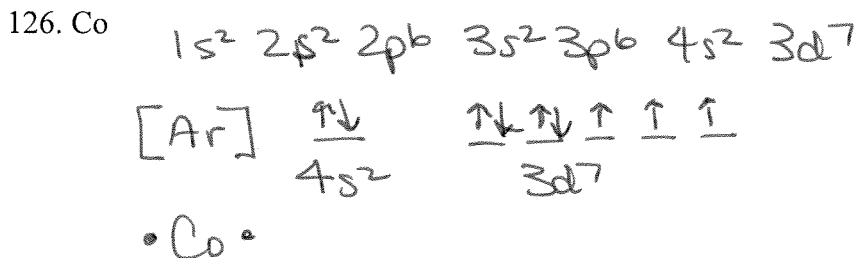 126. Co 1s² 2s² 2p⁶ 3s² 3p⁶ 4s² 3d⁷
[Ar] ↑↓ ↑↓ ↑↓ ↑ ↑ ↑
4s² 3d⁷
• Co •